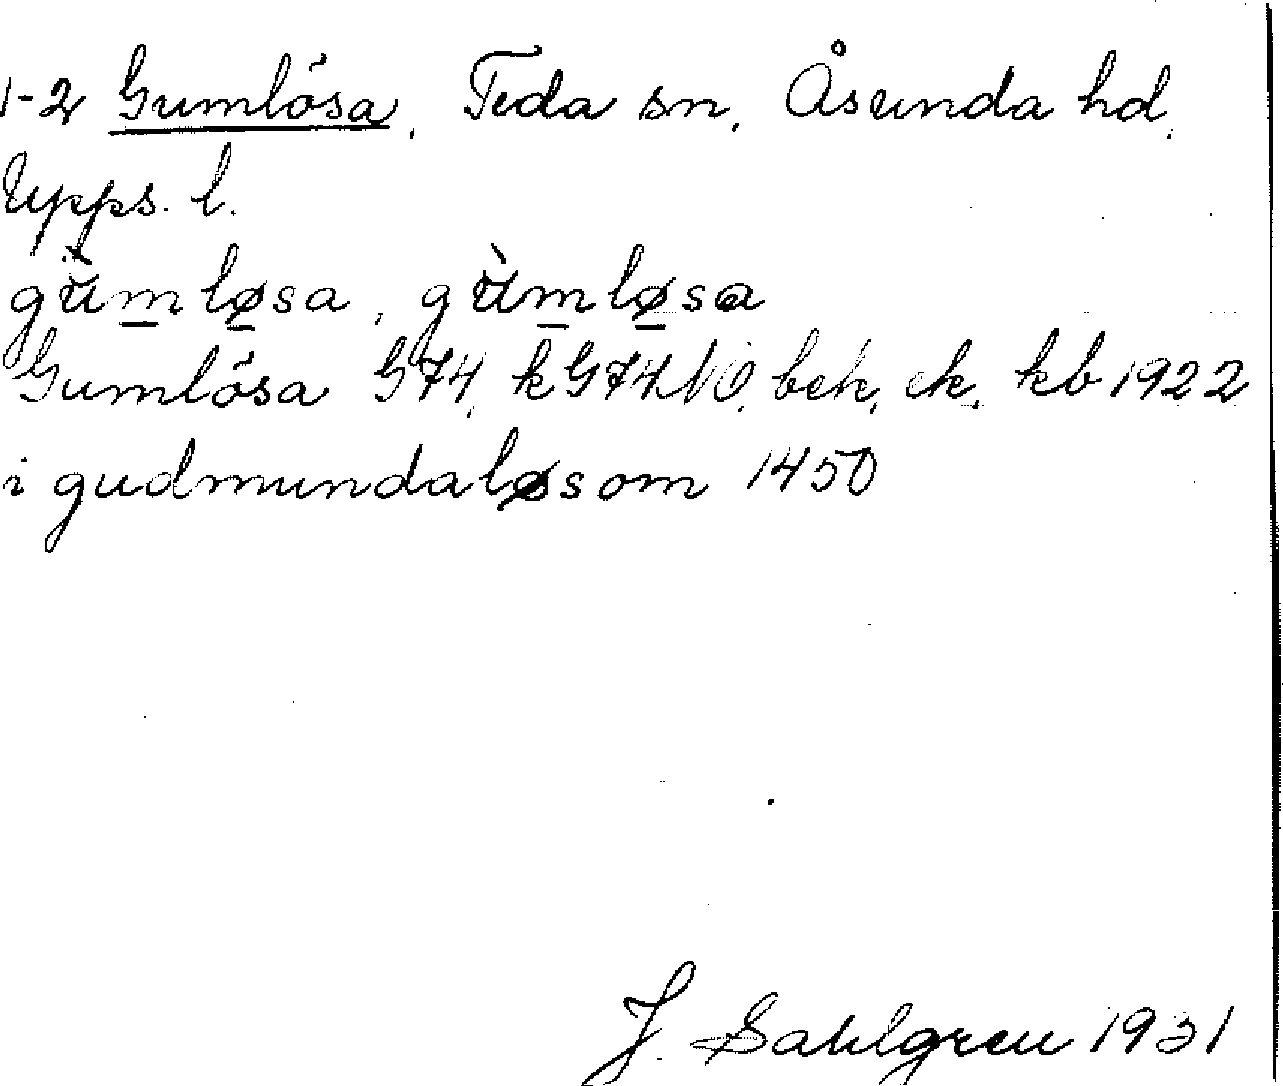 1-2 Gumlösa, Teda sn, Åsunda hd,
Upps. l.
gùmløsa, gùmløsa
Gumlösa G74, kG74NO, bek, ek, kb 1922
i gudmundaløsom 1450
J. Sahlgren 1931